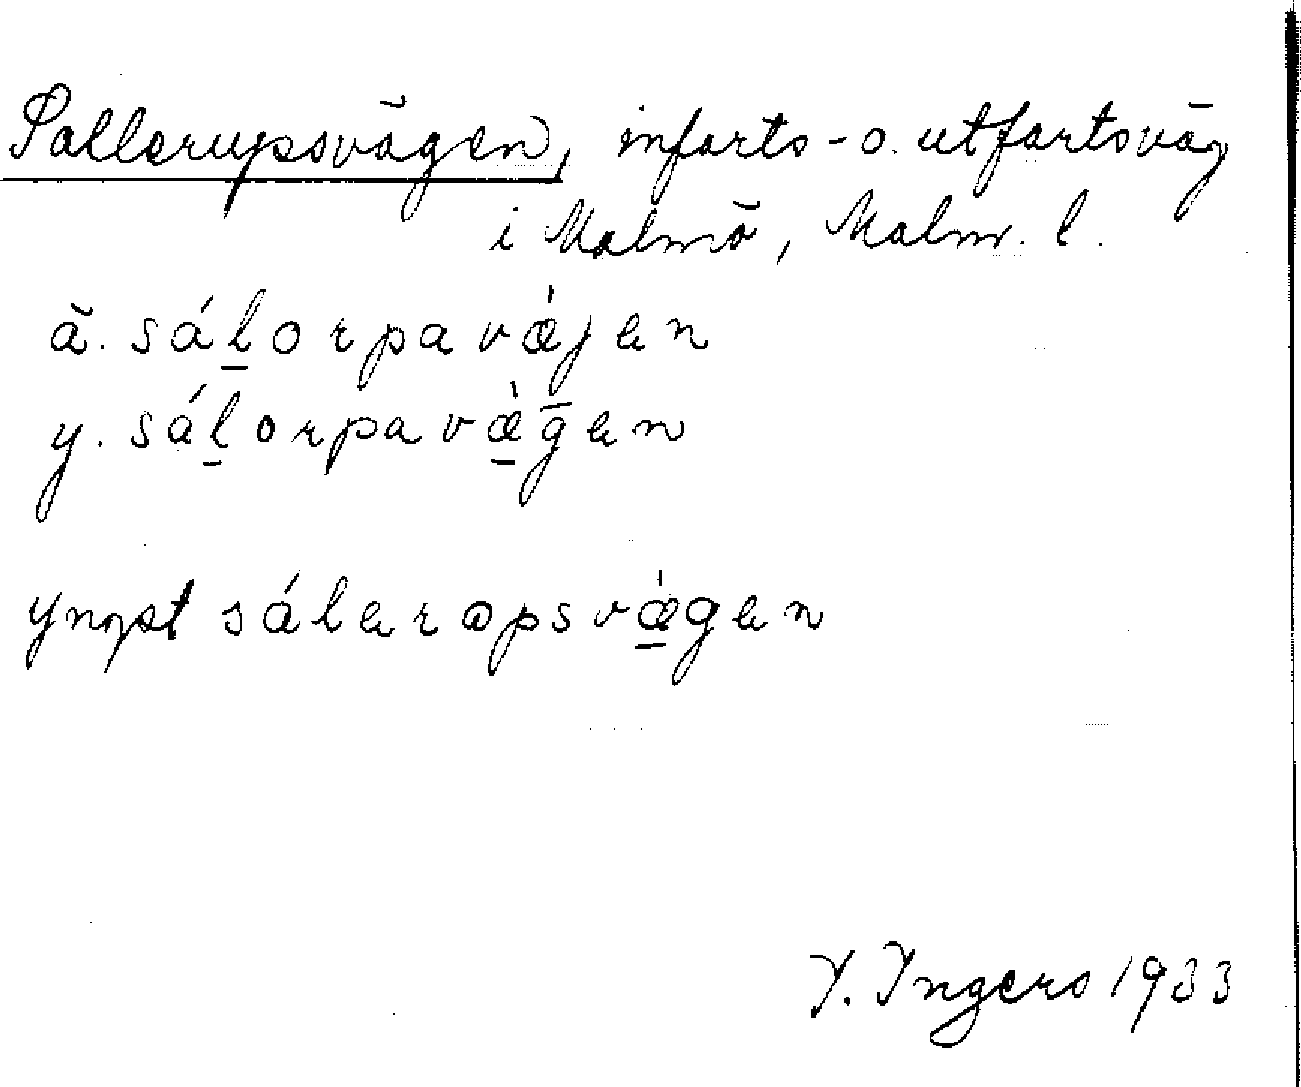 Sallerupsvägen, infarts- o. utfartsväg
i Malmö, Malm. l.
ä. sálorpavæ̀jen
y. sálorpavæ̀gen
yngst sálerɷpsvæ̀gen
I. Ingers 1933